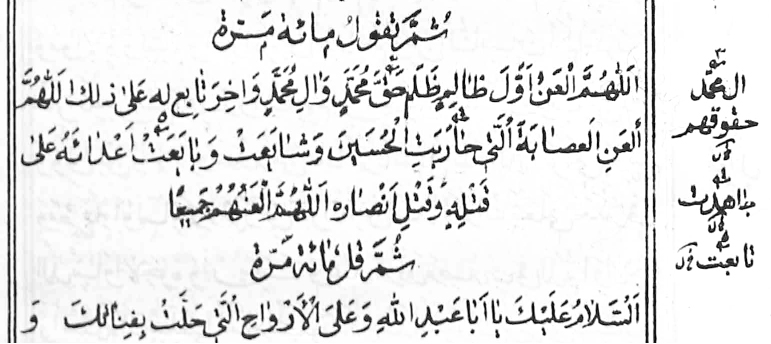 ثُمَّ تَقُولُ مِائَةَ مَرَّةٍ
اَللّٰهُمَّ الْعَنْ اَوَّلَ ظَالِمٍ ظَلَمَ حَقَّ مُحَمَّدٍ وَاٰلِ مُحَمَّدٍ وَاٰخِرَ تَابِعٍ لَهُ عَلٰى ذٰلِكَ اَللّٰهُمَّ
الْعَنِ الْعِصَابَةَ الَّتِي حَارَبَتِ الْحُسَيْنَ وَشَايَعَتْ وَبَايَعَتْ اَعْدَائَهُ عَلٰى
قَتْلِهِ وَقَتْلِ اَنْصَارِهِ اَللّٰهُمَّ الْعَنْهُمْ جَمِيعًا
ثُمَّ قُلْ مِائَةَ مَرَّةٍ
اَلسَّلَامُ عَلَيْكَ يَا اَبَا عَبْدِ اللّٰهِ وَعَلَى الْاَرْوَاحِ الَّتِي حَلَّتْ بِفِنَائِكَ وَ
ال محمد
حقوقهم
جاهدت
تابعت